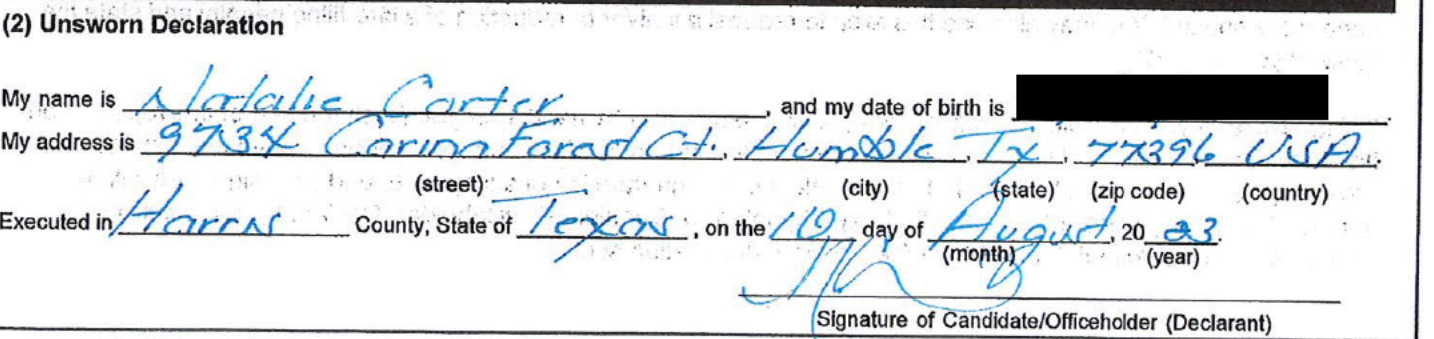 (2) Unsworn Declaration
My name is Natalie Carter, and my date of birth is
My address is 9734 Carina Forest Ct., Humble, Tx, 77396, USA.
(street) (city) (state) (zip code) (country)
Executed in Harris County, State of Texas, on the 10 day of August, 20 23.
(month) (year)
Signature of Candidate/Officeholder (Declarant)